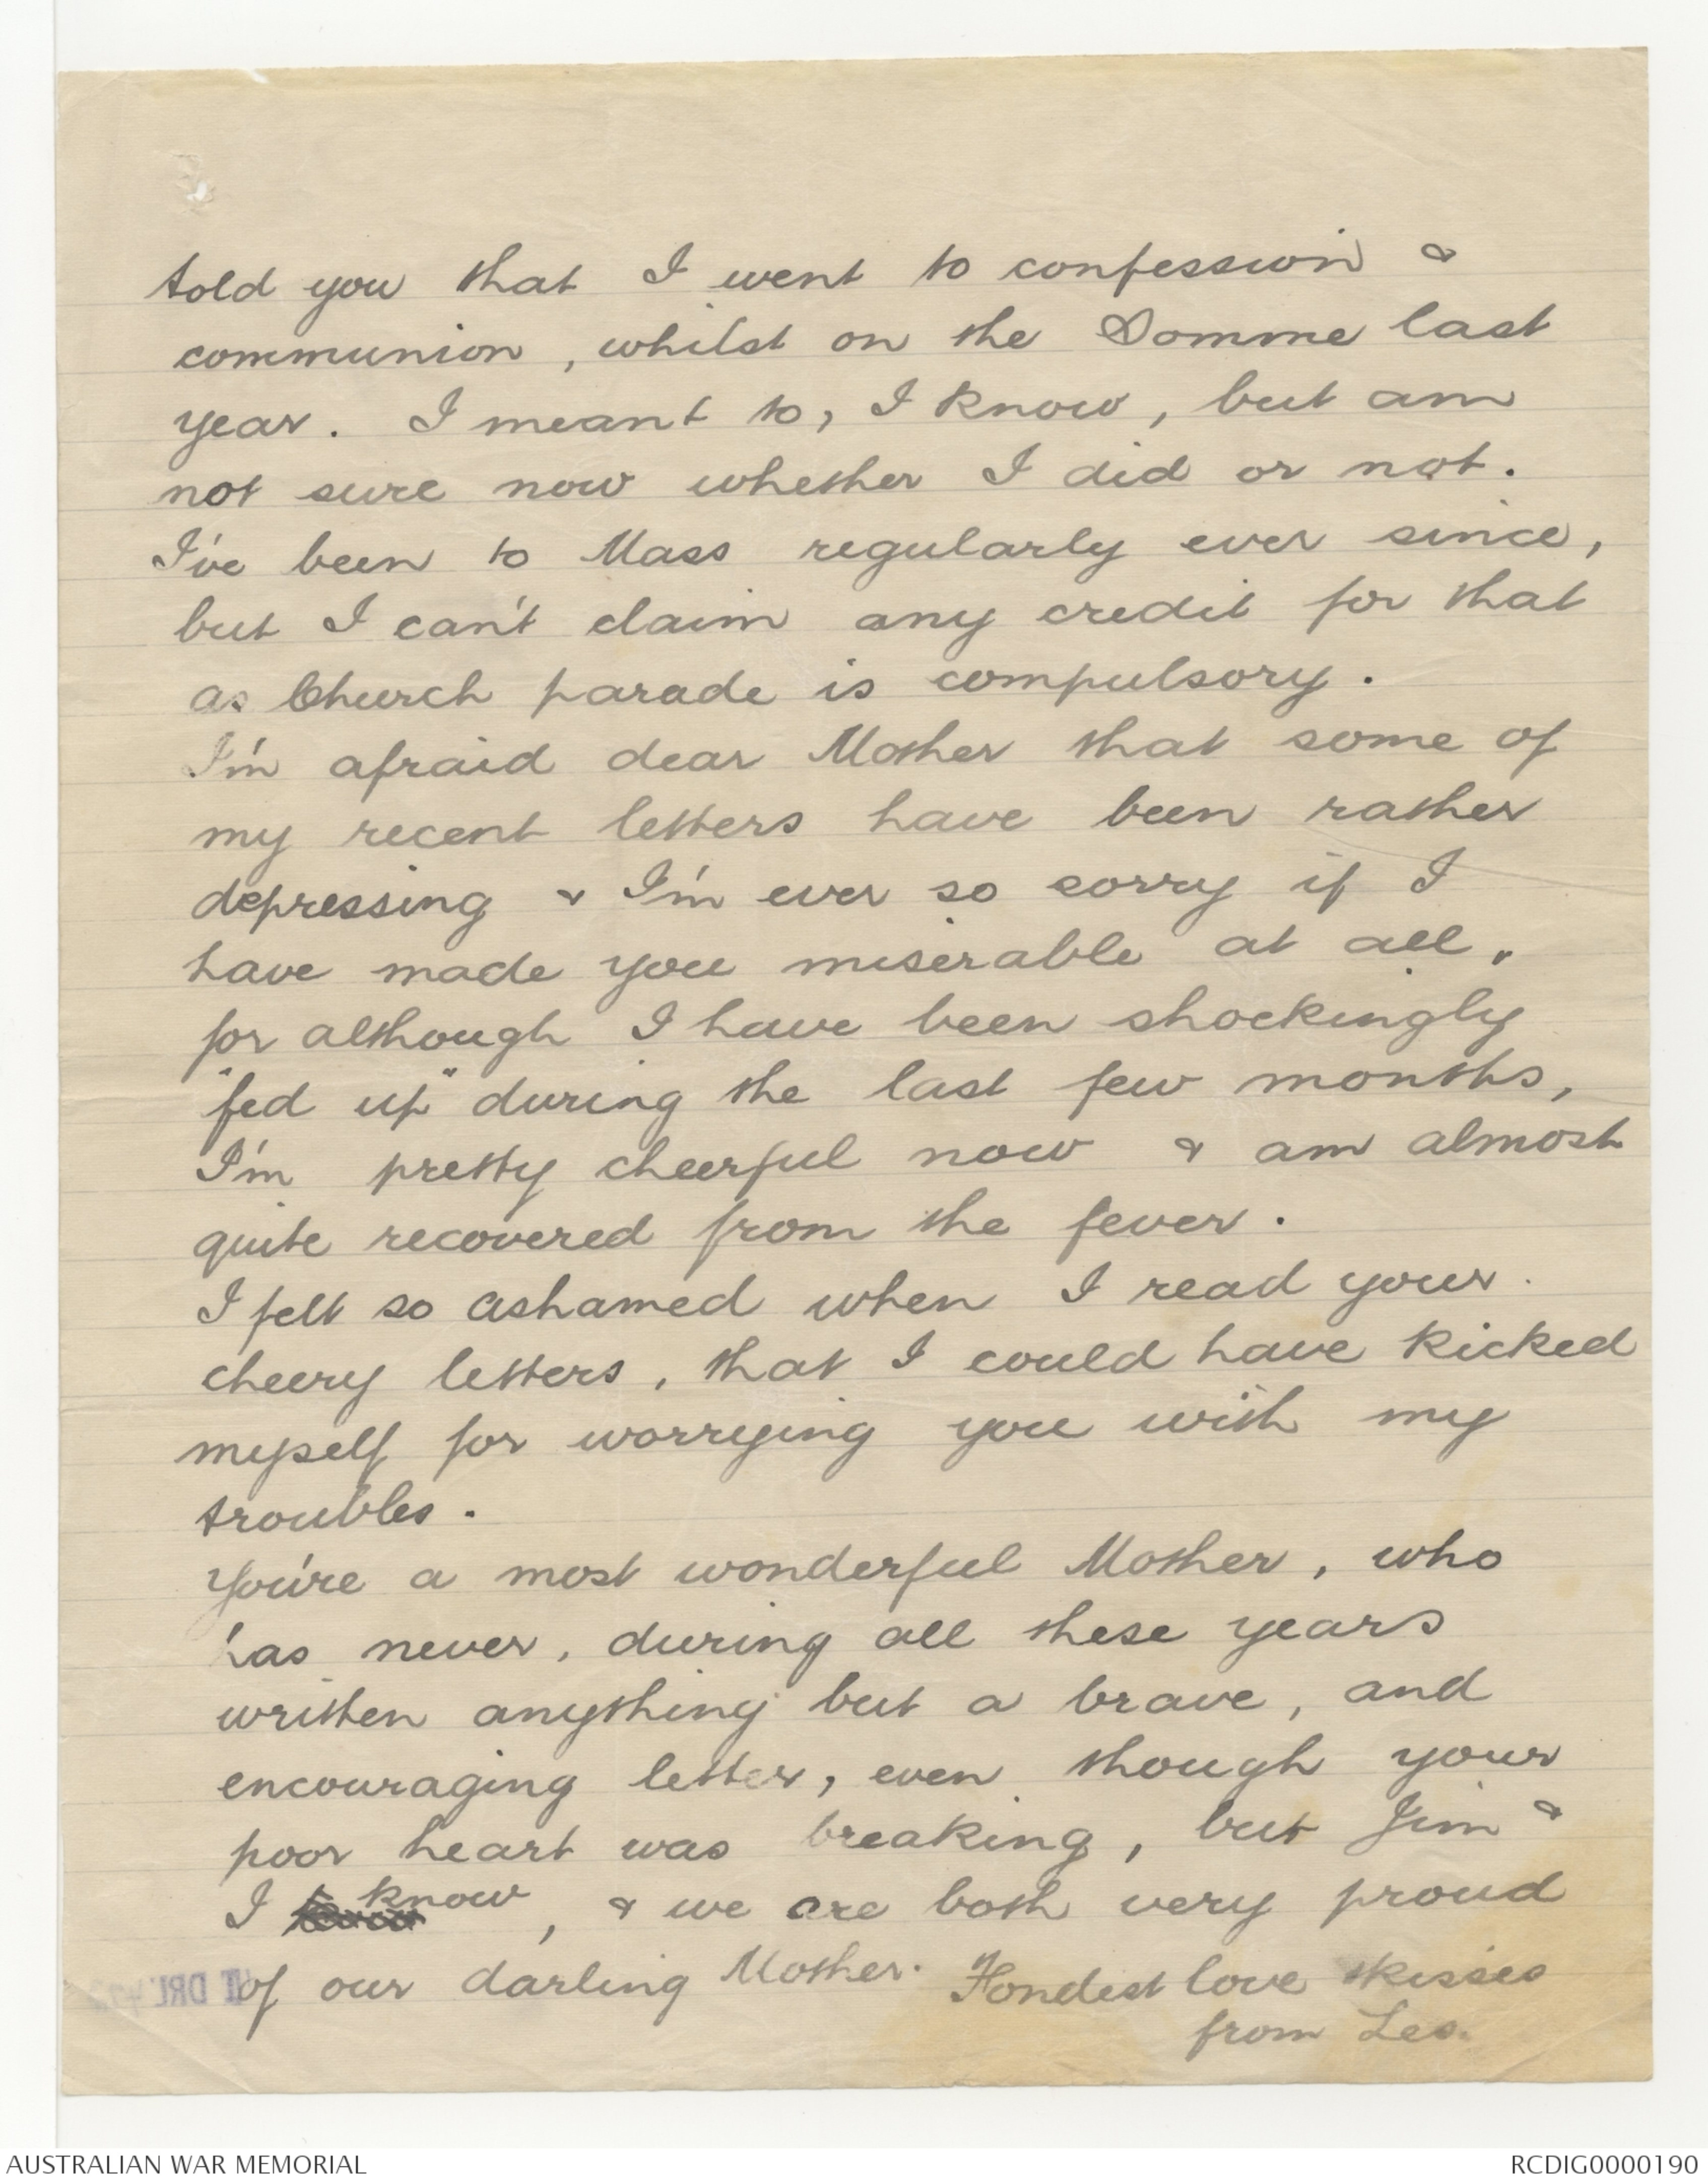 told you that I went to confession &
communion, whilst on the Somme last
year. I meant to, I know, but am
not sure now whether I did or not.
I've been to Mass regularly ever since,
but I can't claim any credit for that
as Church parade is compulsory.
I'm afraid dear Mother that some of
my recent letters have been rather
depressing & I'm ever so sorry if I
have made you miserable at all,
for although I have been shockingly
"fed up" during the last few months,
I'm pretty cheerful now & am almost
quite recovered from the fever.
I felt so ashamed when I read your
cheery letters, that I could have kicked
myself for worrying you with my
troubles.
You're a most wonderful Mother, who
has never, during all these years
written anything but a brave, and
encouraging letter, even though your
poor heart was breaking, but Jim &
I know, & we are both very proud
of our darling Mother. Fondest love & kisses
from Les.
AUSTRALIAN WAR MEMORIAL
RCDIG0000190